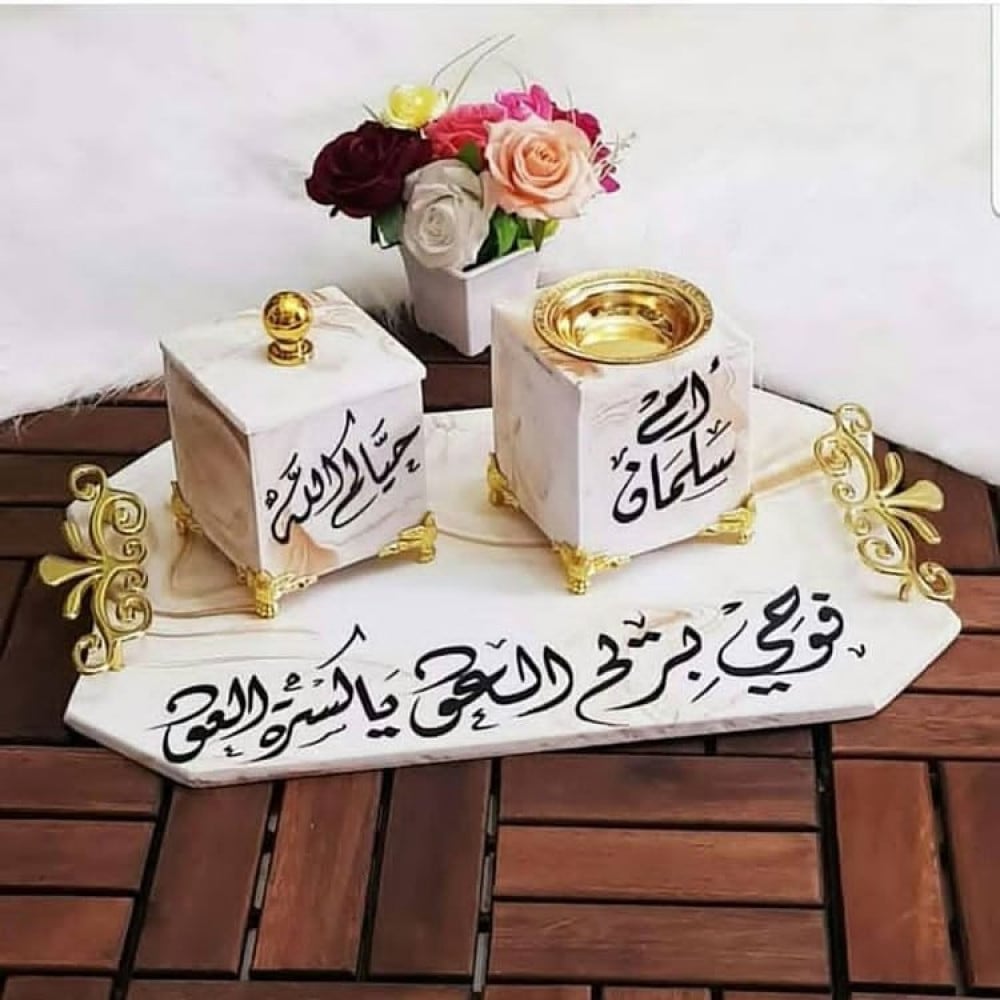 حيّاكم الله
ام
سلمان
فوحي بريح العود يا كسرة العود